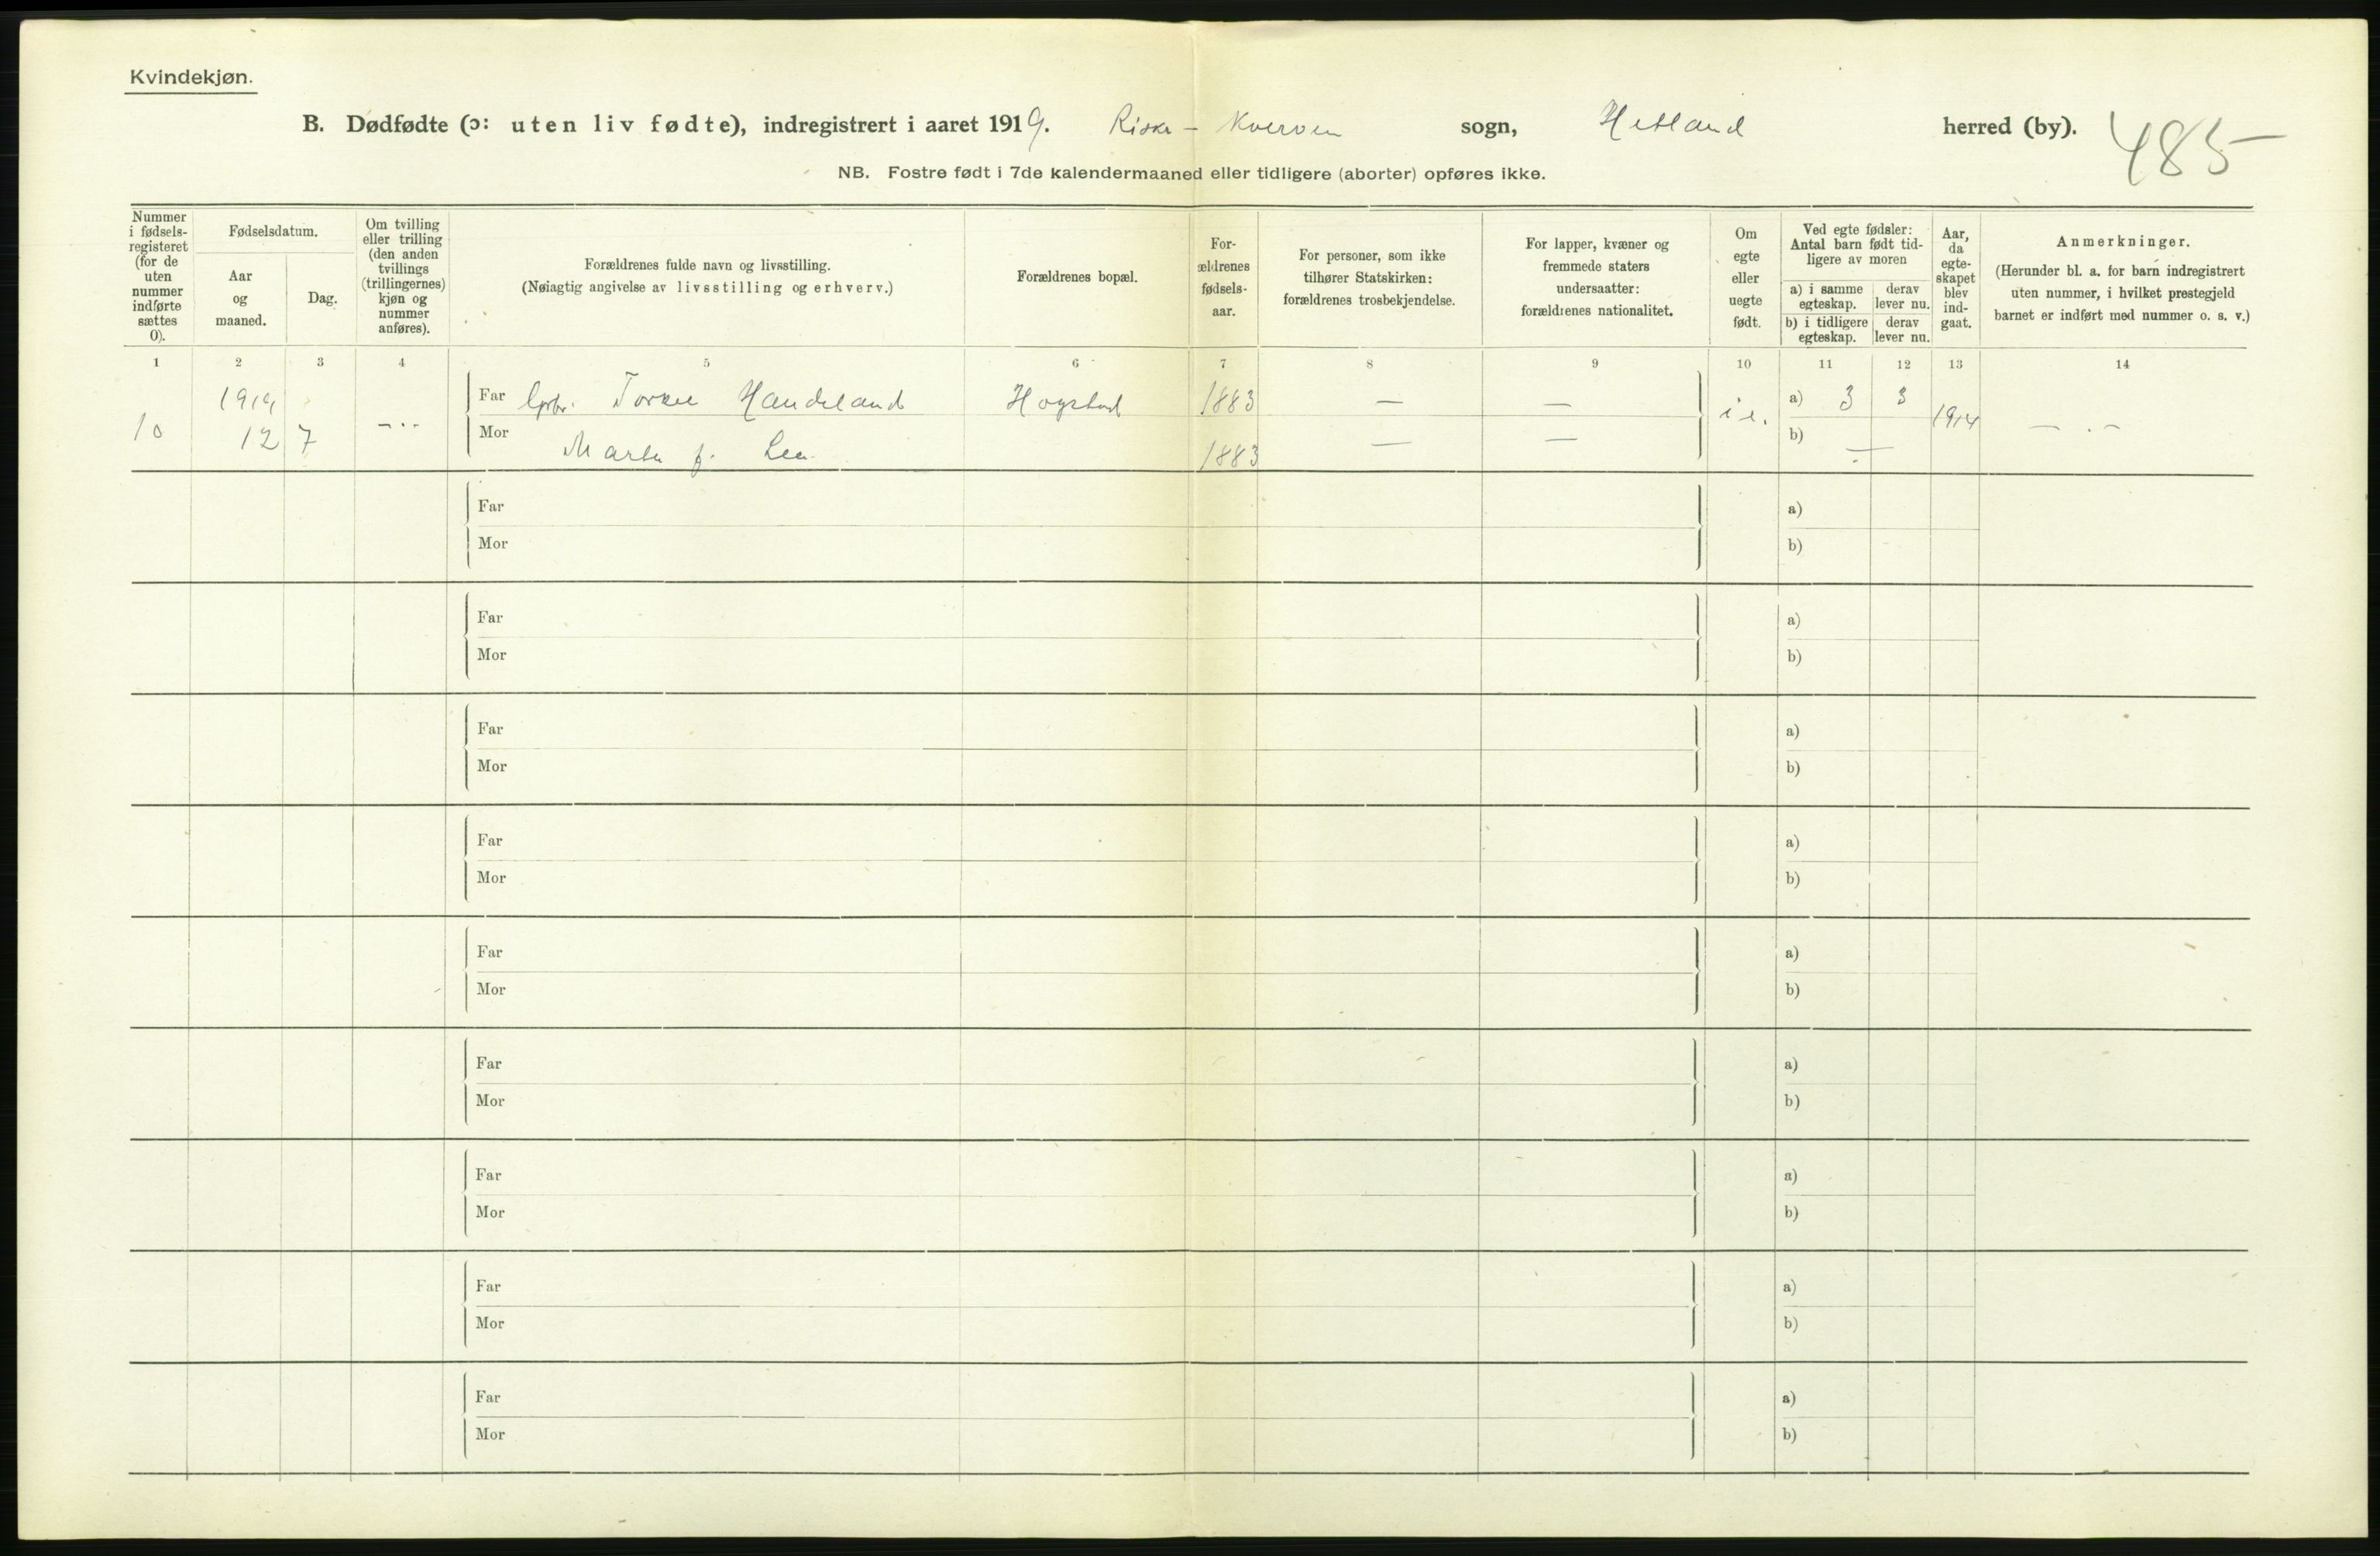 Kvindekjøn.
B. Dødfødte (ɔ: uten liv fødte), indregistrert i aaret 1919. Riska - Kverven sogn, Hetland herred (by). 485
NB. Fostre født i 7de kalendermaaned eller tidligere (aborter) opføres ikke.
Nummer
i fødsels-
registeret
(for de
uten
nummer
indførte
sættes
0).
Fødselsdatum.
Aar
og
maaned.
Dag.
Om tvilling
eller trilling
(den anden
tvillings
(trillingernes)
kjøn og
nummer
anføres).
Forældrenes fulde navn og livsstilling.
(Nøiagtig angivelse av livsstilling og erhverv.)
Forældrenes bopæl.
For-
ældrenes
fødsels-
aar.
For personer, som ikke
tilhører Statskirken:
forældrenes trosbekjendelse.
For lapper, kvæner og
fremmede staters
undersaatter:
forældrenes nationalitet.
Om
egte
eller
uegte
født.
Ved egte fødsler:
Antal barn født tid-
ligere av moren
a) i samme
egteskap.
derav
lever nu.
b) i tidligere
egteskap.
derav
lever nu.
Aar,
da
egte-
skapet
blev
ind-
gaat.
Anmerkninger.
(Herunder bl. a. for barn indregistrert
uten nummer, i hvilket prestegjeld
barnet er indført med nummer o. s. v.)
1 2 3 4 5 6 7 8 9 10 11 12 13 14
1919
10 12 7 -..-
Far Grbr. Torkel Handeland Hogstad 1883 — — i e. a) 3 3 1914 — . —
Mor Marta f. Lea 1883 — — b) —
Far a)
Mor b)
Far a)
Mor b)
Far a)
Mor b)
Far a)
Mor b)
Far a)
Mor b)
Far a)
Mor b)
Far a)
Mor b)
Far a)
Mor b)
Far a)
Mor b)